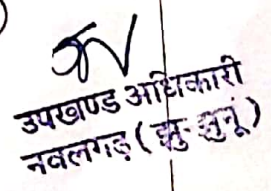 उपखण्ड अधिकारी
नवलगढ़ (झु-झुनूं)